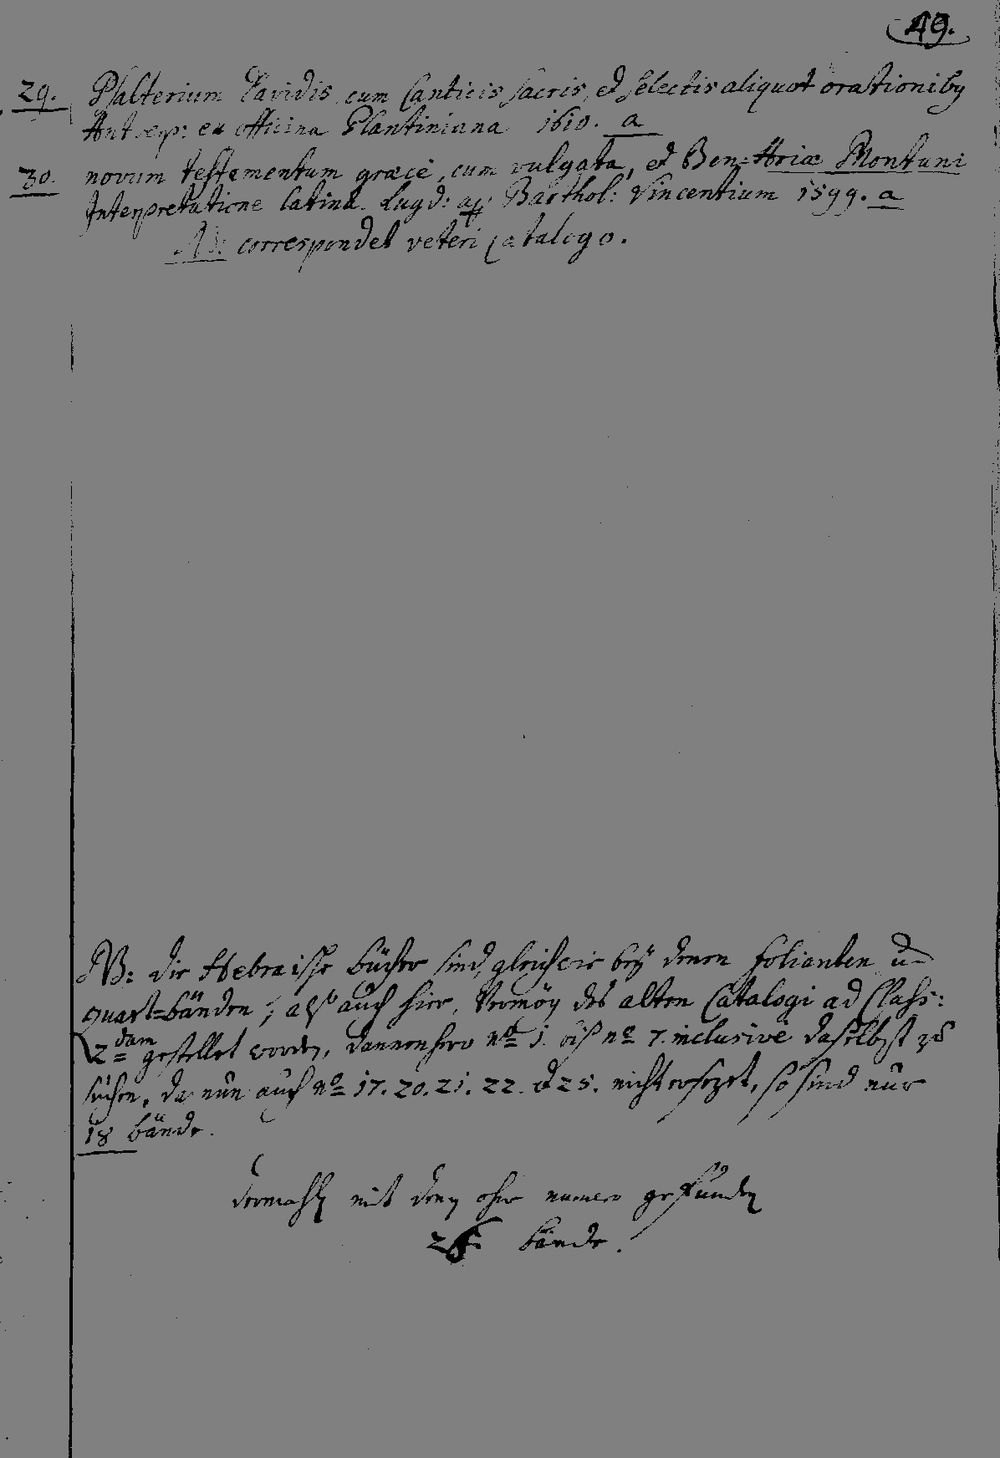 49.
29. Psalterium Davidis cum Canticis sacris, et selectis aliquot orationibȝ
Antverp: ex officina Plantiniana 1610. a
30. novum testamentum græcè, cum vulgata, et Ben= Ariæ Montani
Interpretatione latina. Lugd: ap: Barthol: Vincentium 1599. a
NB: correspondet veteri catalogo.
NB: die Hebraische bücher sind, gleichwie beÿ denen folianten u
quart=bänden, als auch hier, Vermög des alten Catalogi ad Class:
2dam gestellet worden, dannenhero No 1. bis no 7. inclusivè daselbst zu
suchen, da nun auch No 17. 20. 21. 22. et 25. nicht ersezet, so sind nur
18 bände.
dermahln mit den ohne numero gefunden
bände.